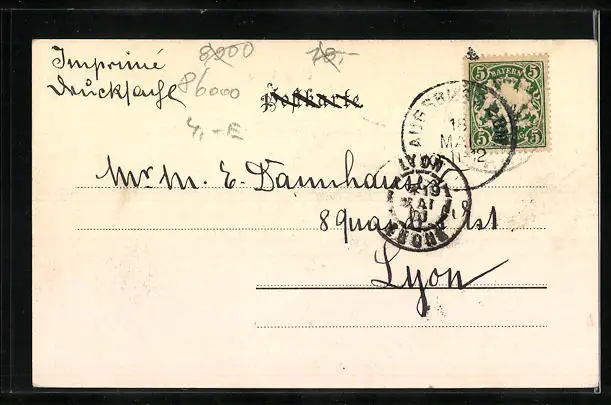 Imprimé
Drucksache
8000
86000
10,-
4,-E
Postkarte
5 BAYERN 5
5 5
AUGSBURG
18
MAI
11-12
LYON
RHONE
Mr M. E. Dannhauser
8 quai Est
Lyon